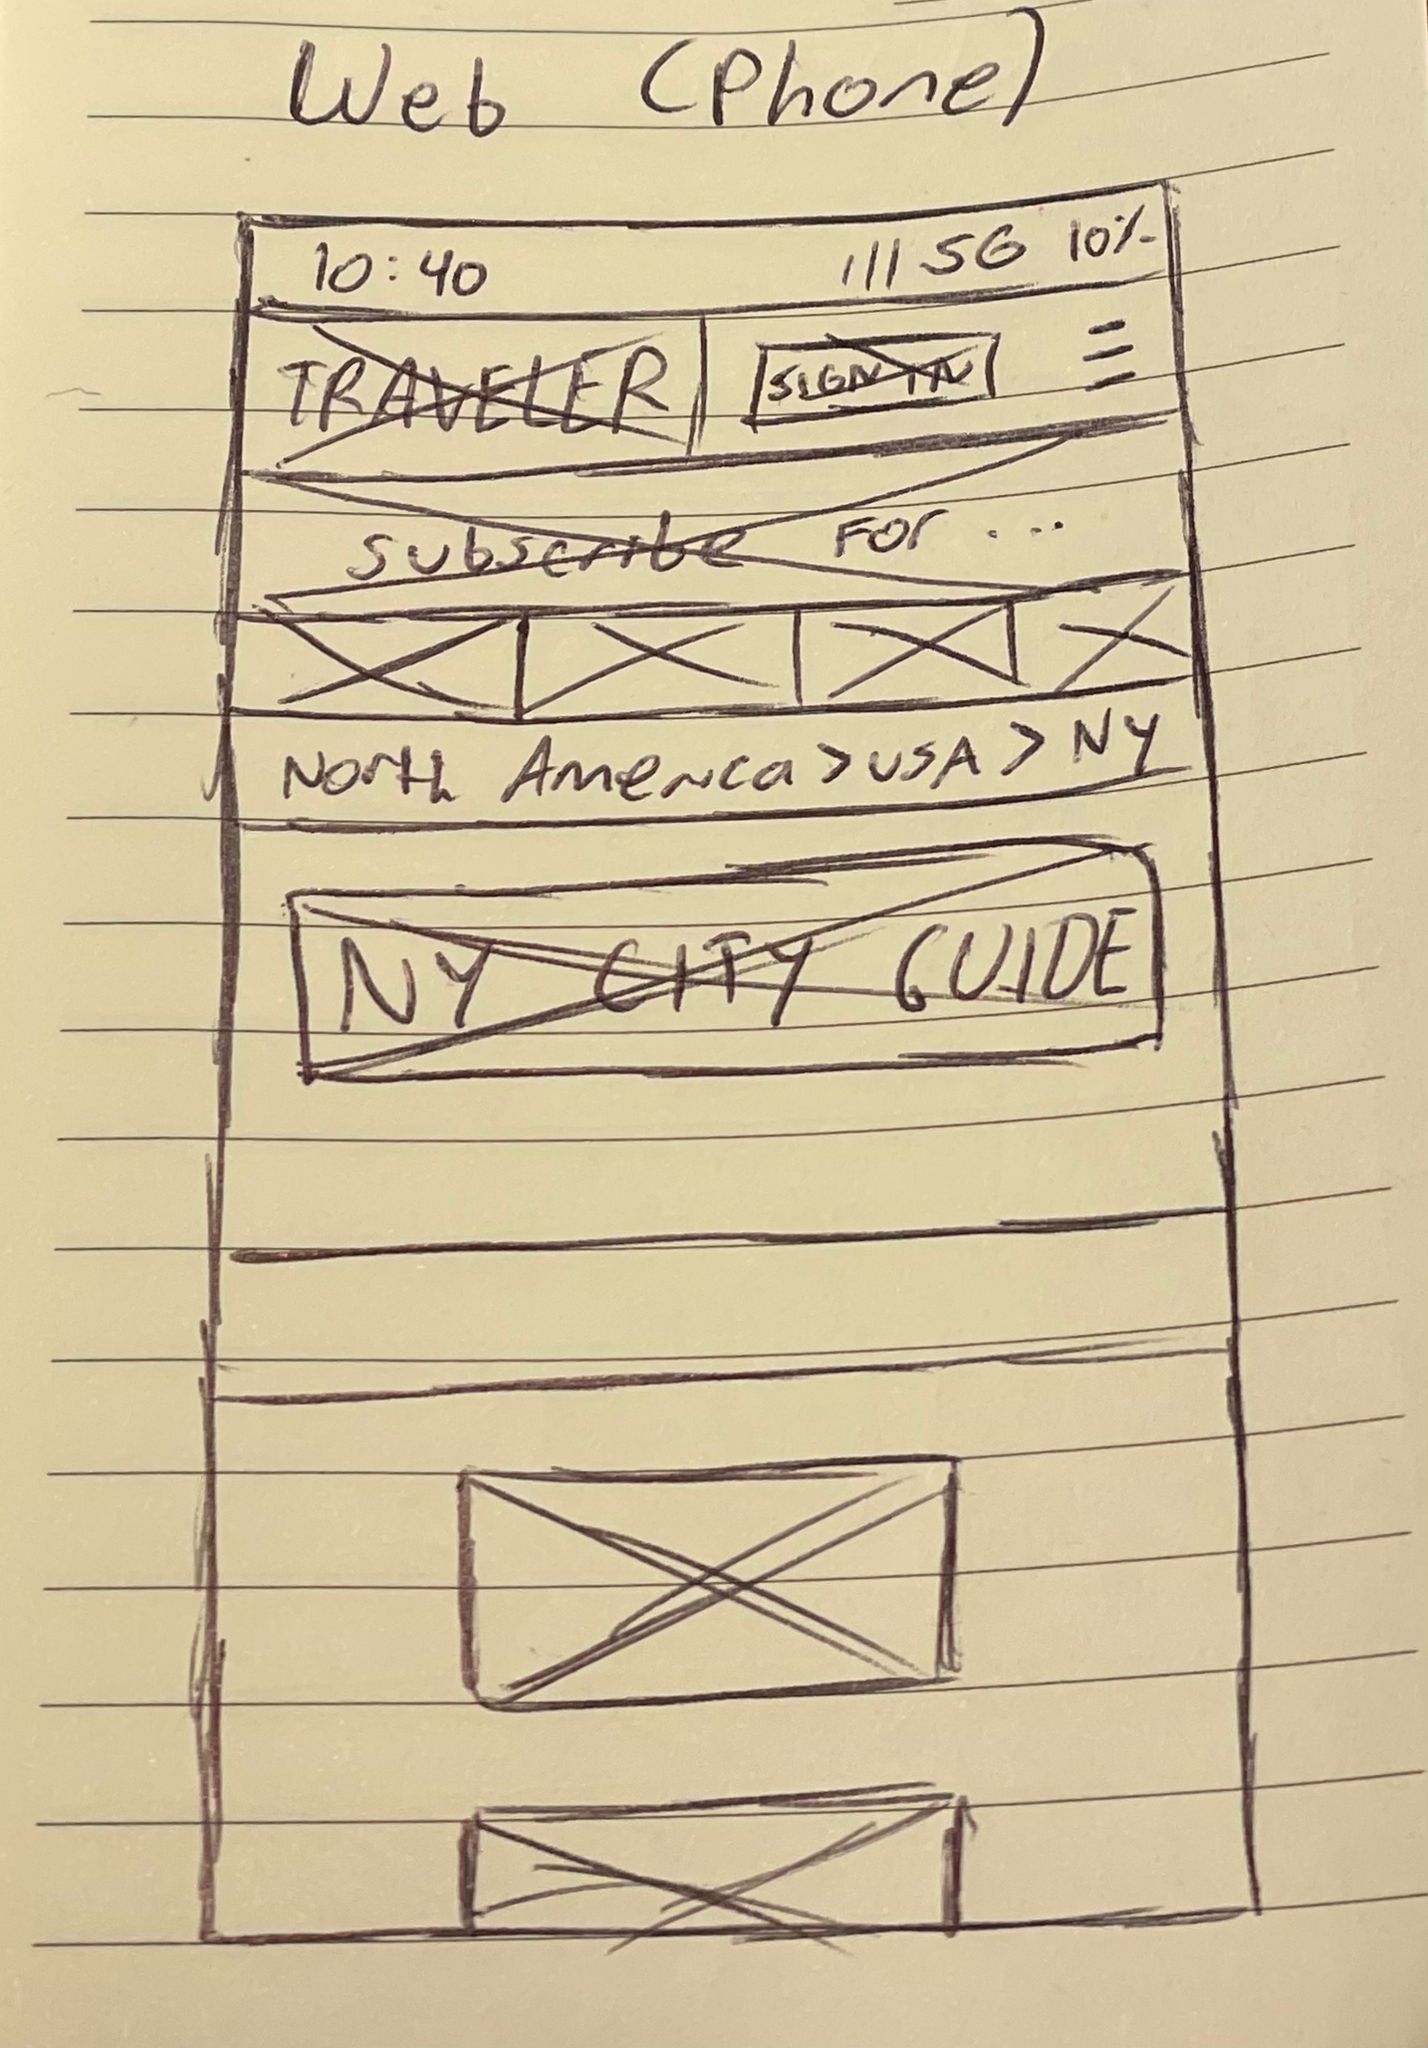 Web (Phone)
10:40 5G 10%
TRAVELER SIGN IN
Subscribe For ...
North America > USA > NY
NY CITY GUIDE